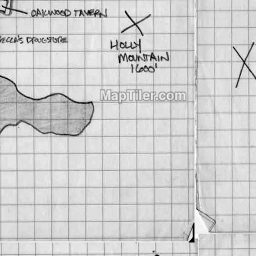 OAKWOOD TAVERN
DRUGSTORE
HOLLY
MOUNTAIN
1600'
MapTiler.com